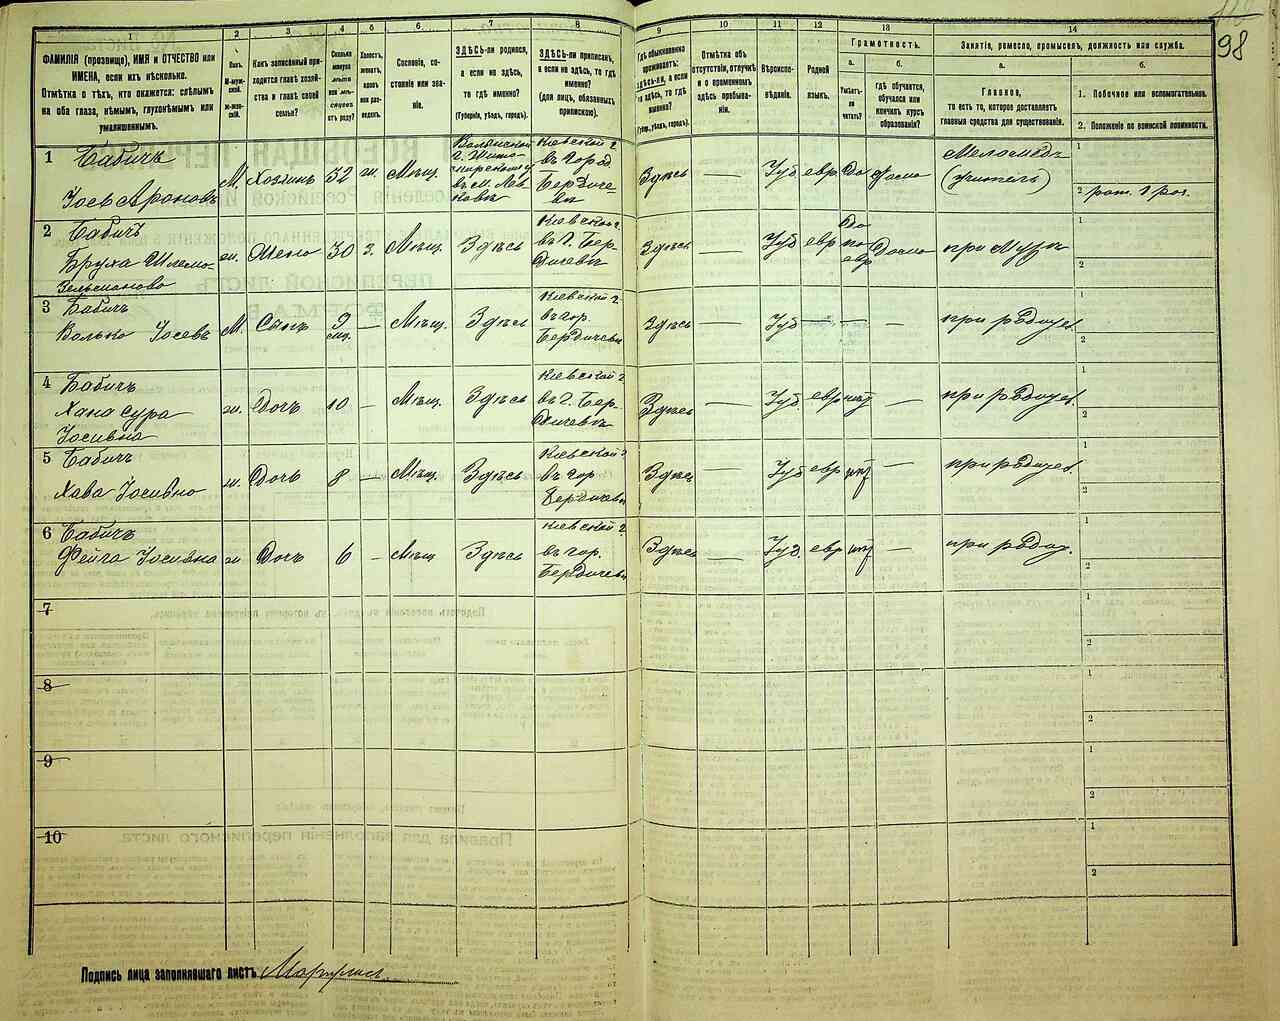 98
1
2
3
4
5
6
7
8
9
10
11
12
13
14
ФАМИЛІЯ (прозвище), ИМЯ и ОТЧЕСТВО или
ИМЕНА, если ихъ нѣсколько.
Отмѣтка о тѣхъ, кто окажется: слѣпымъ
на оба глаза, нѣмымъ, глухонѣмымъ или
умалишеннымъ.
Полъ.
М-муж-
скій.
Ж-жен-
скій.
Какъ записанный при-
ходится главѣ хозяй-
ства и главѣ своей
семьи?
Сколько
минуло
лѣтъ
или мѣ-
сяцевъ
отъ роду?
Холостъ,
женатъ,
вдовъ
или раз-
веденъ.
Сословіе, со-
стояніе или зва-
ніе.
ЗДѢСЬ-ли родился,
а если не здѣсь,
то гдѣ именно?
(Губернія, уѣздъ, городъ).
ЗДѢСЬ-ли приписанъ,
а если не здѣсь, то гдѣ
именно?
(для лицъ, обязанныхъ
припискою).
Гдѣ обыкновенно
проживаетъ:
здѣсь-ли, а если
не здѣсь, то гдѣ
именно?
(Губ., уѣздъ, городъ).
Отмѣтка объ
отсутствіи, отлучкѣ
и о временномъ
здѣсь пребыва-
ніи.
Вѣроиспо-
вѣданіе.
Родной
языкъ.
Грамотность.
а.
б.
Умѣетъ-
ли
читать?
гдѣ обучается,
обучался или
кончилъ курсъ
образованія?
Занятіе, ремесло, промыселъ, должность или служба.
а.
б.
Главное,
то есть то, которое доставляетъ
главныя средства для существованія.
1. Побочное или вспомогательное.
2. Положеніе по воинской повинности.
1 Бабичъ
Іосъ Ароновъ
М. Хозяинъ 32 ж. Мѣщ.
Кіевской г.
въ гор.
Бердиче
вѣ
Здѣсь — Іуд евр Да Дома
Меламедъ
(учитель)
1
2 рат. 2 раз.
2 Бабичъ
Бруха Шлемо-
Зельмановa
ж. Жена 30 з. Мѣщ. Здѣсь
Кіевской г.
въ г. Бер-
дичевѣ
Здѣсь — Іуд евр
Да
по
евр
Дома при мужѣ
1
2
3 Бабичъ
Волько Іосевъ
М. Сынъ 9 — Мѣщ. Здѣсь
Кіевской г.
въ гор.
Бердичевѣ
Здѣсь — Іуд — — — при родител.
1
2
4 Бабичъ
Хана Сура
Іосивна
ж. Дочь 10 — Мѣщ. Здѣсь
Кіевской г.
въ г. Бер-
дичевѣ
Здѣсь — Іуд. евр нѣт — при родител.
1
2
5 Бабичъ
Хава Іосивна
ж. Дочь 8 — Мѣщ. Здѣсь
Кіевской г.
въ гор.
Бердичевѣ
Здѣсь — Іуд евр нѣт — при родител.
1
2
6 Бабичъ
Фейга Іосивна
ж Дочь 6 — Мѣщ Здѣсь
Кіевской г.
въ гор.
Бердичевѣ
Здѣсь — Іуд. евр нѣт — при родит.
1
2
7
1
2
8
1
2
9
1
2
10
1
2
Подпись лица заполнявшаго листъ